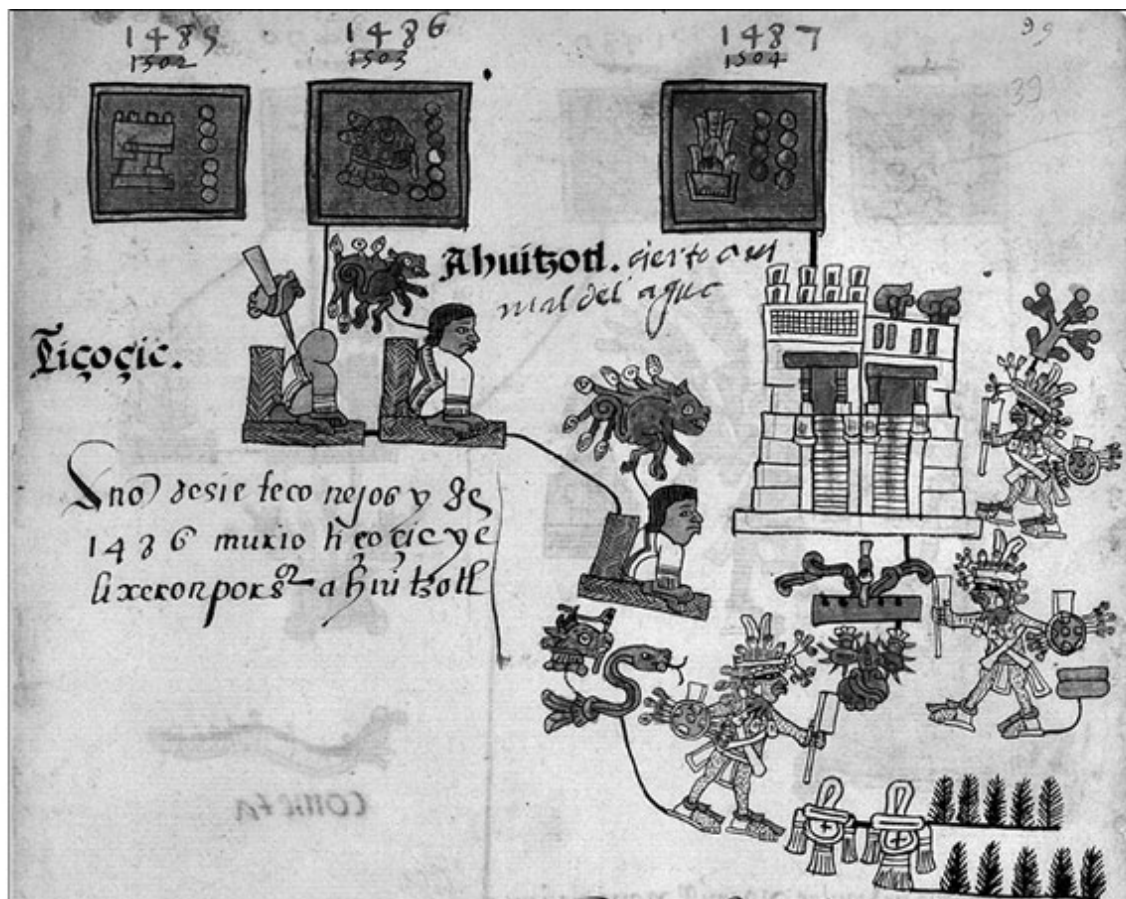 1485 1486 1487
1502 1503 1504
39
39
Ahuitzotl. cierto ani
mal del agua
Tiçoçic.
Año de siete conejos y de
1486 murio tiçoçic y e
lixeron por s^or ahuitzotl